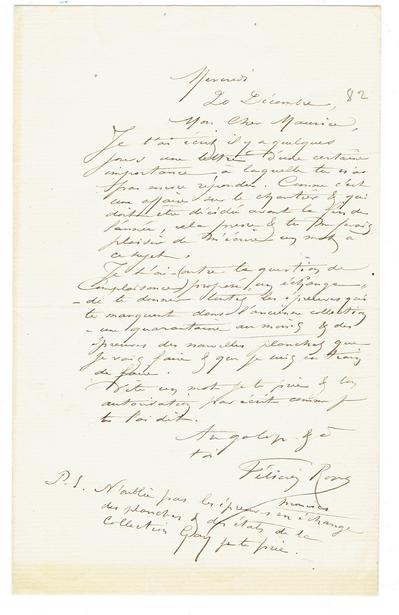 Mercredi
20 Décembre, 82
Mon Cher Maurice,
Je t'ai écrit il y a quelques
jours une lettre d'une certaine
importance à laquelle tu n'as
pas encore répondu. Comme c'est
une affaire sur le chantier & qui
doit être décidée avant la fin de
l'année, cela presse & tu me ferais
plaisir de m'écrire un mot à
ce sujet.
Je t'ai – outre la question de
complaisance, proposé un échange,
– de te donner toutes les épreuves qui
te manquent dans l'ancienne collection
– une quarantaine au moins & des
épreuves des nouvelles planches que
je vais faire & que je suis en train
de faire.
Vite un mot je te prie & ton
autorisation par écrit comme je
te l'ai dit.
Au galop & à
toi
Félicien Rops
P.S. N'oublie pas les épreuves en échange
des planches & des états de la
Collection Gay je te prie.